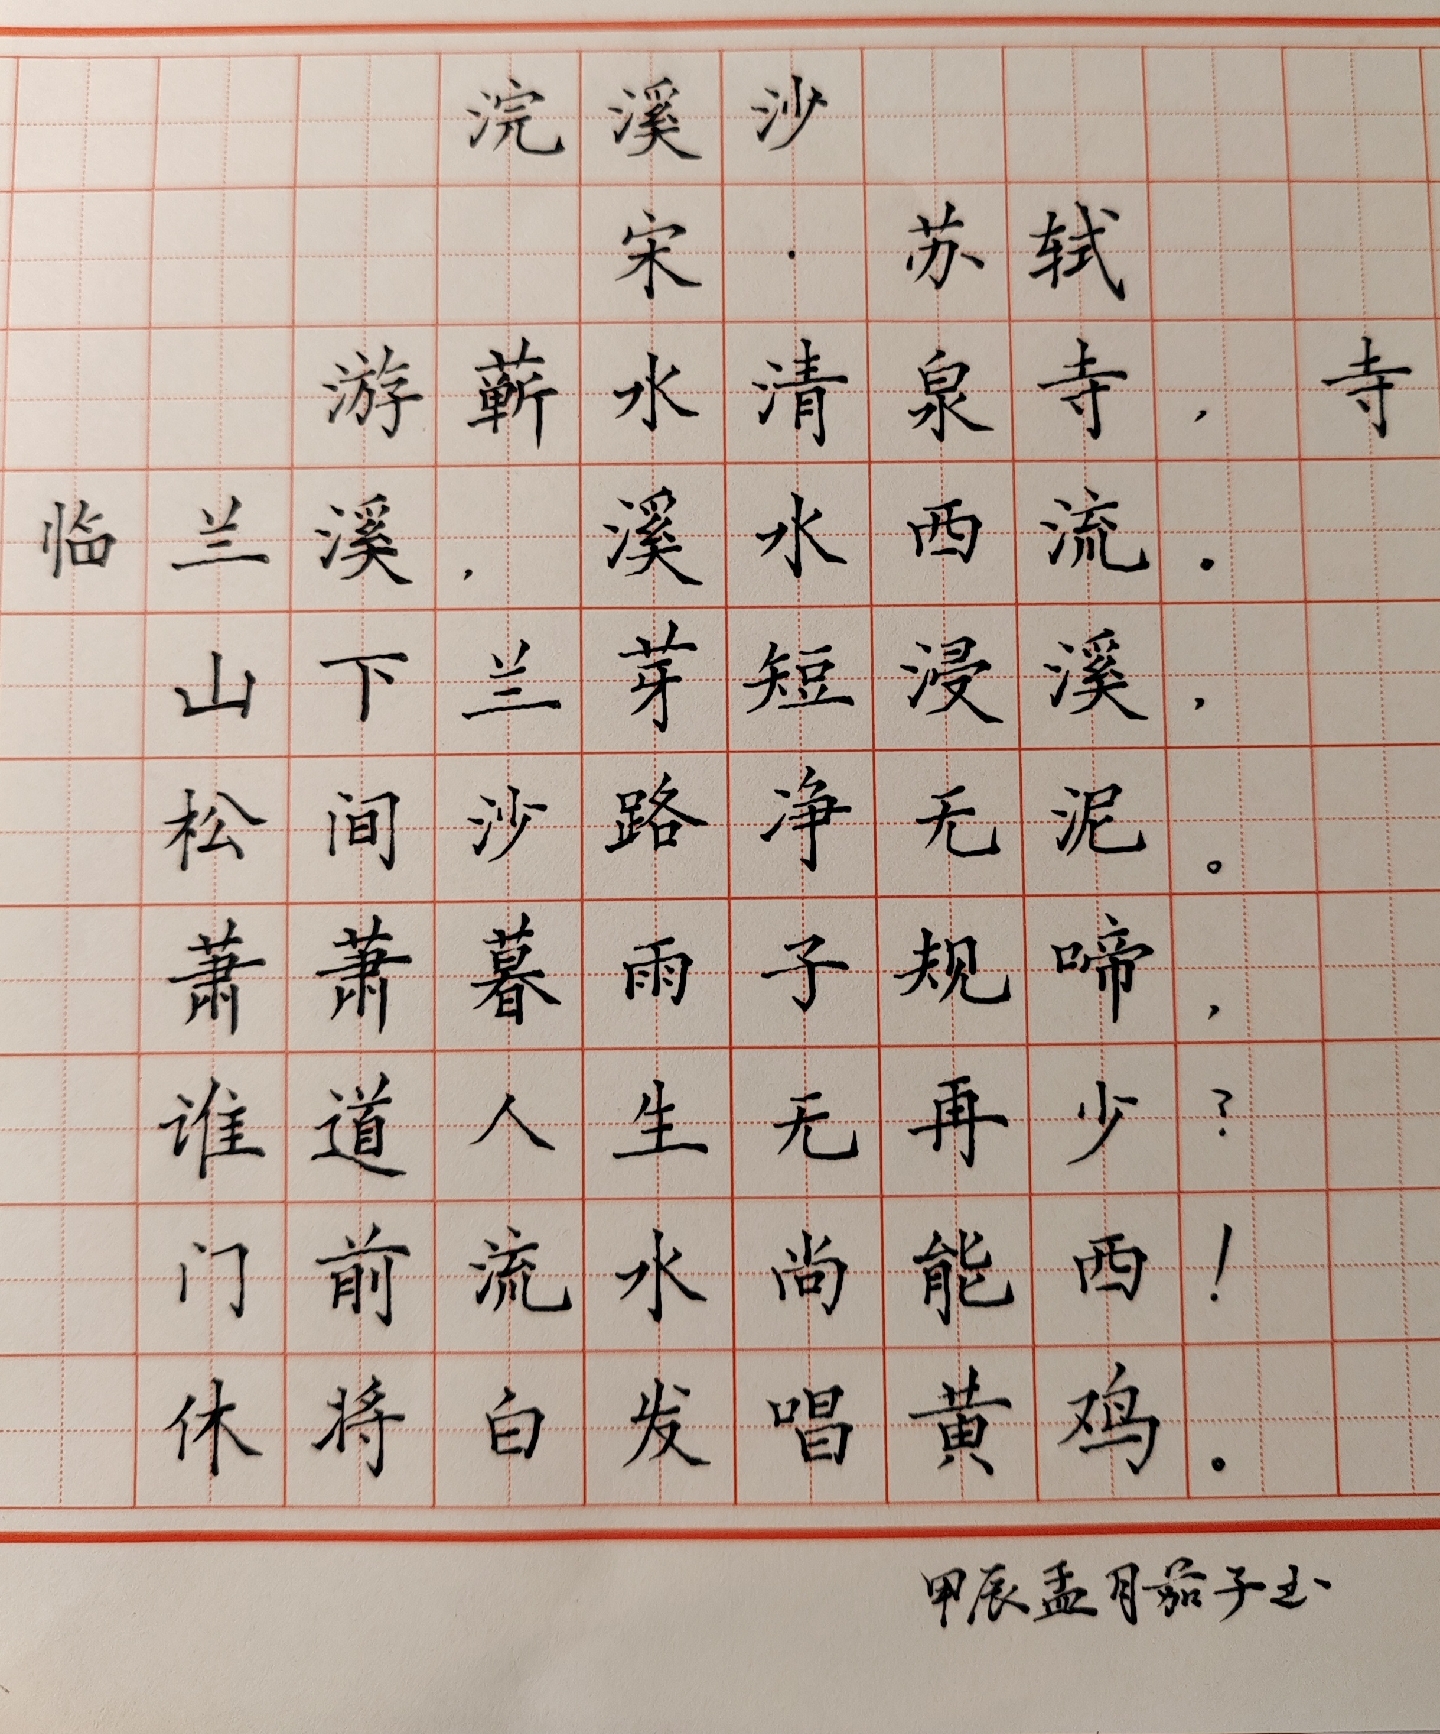 浣溪沙
宋·苏轼
游蕲水清泉寺,寺
临兰溪,溪水西流.
山下兰芽短浸溪,
松间沙路净无泥。
萧萧暮雨子规啼,
谁道人生无再少?
门前流水尚能西!
休将白发唱黄鸡.
甲辰孟月茄子书